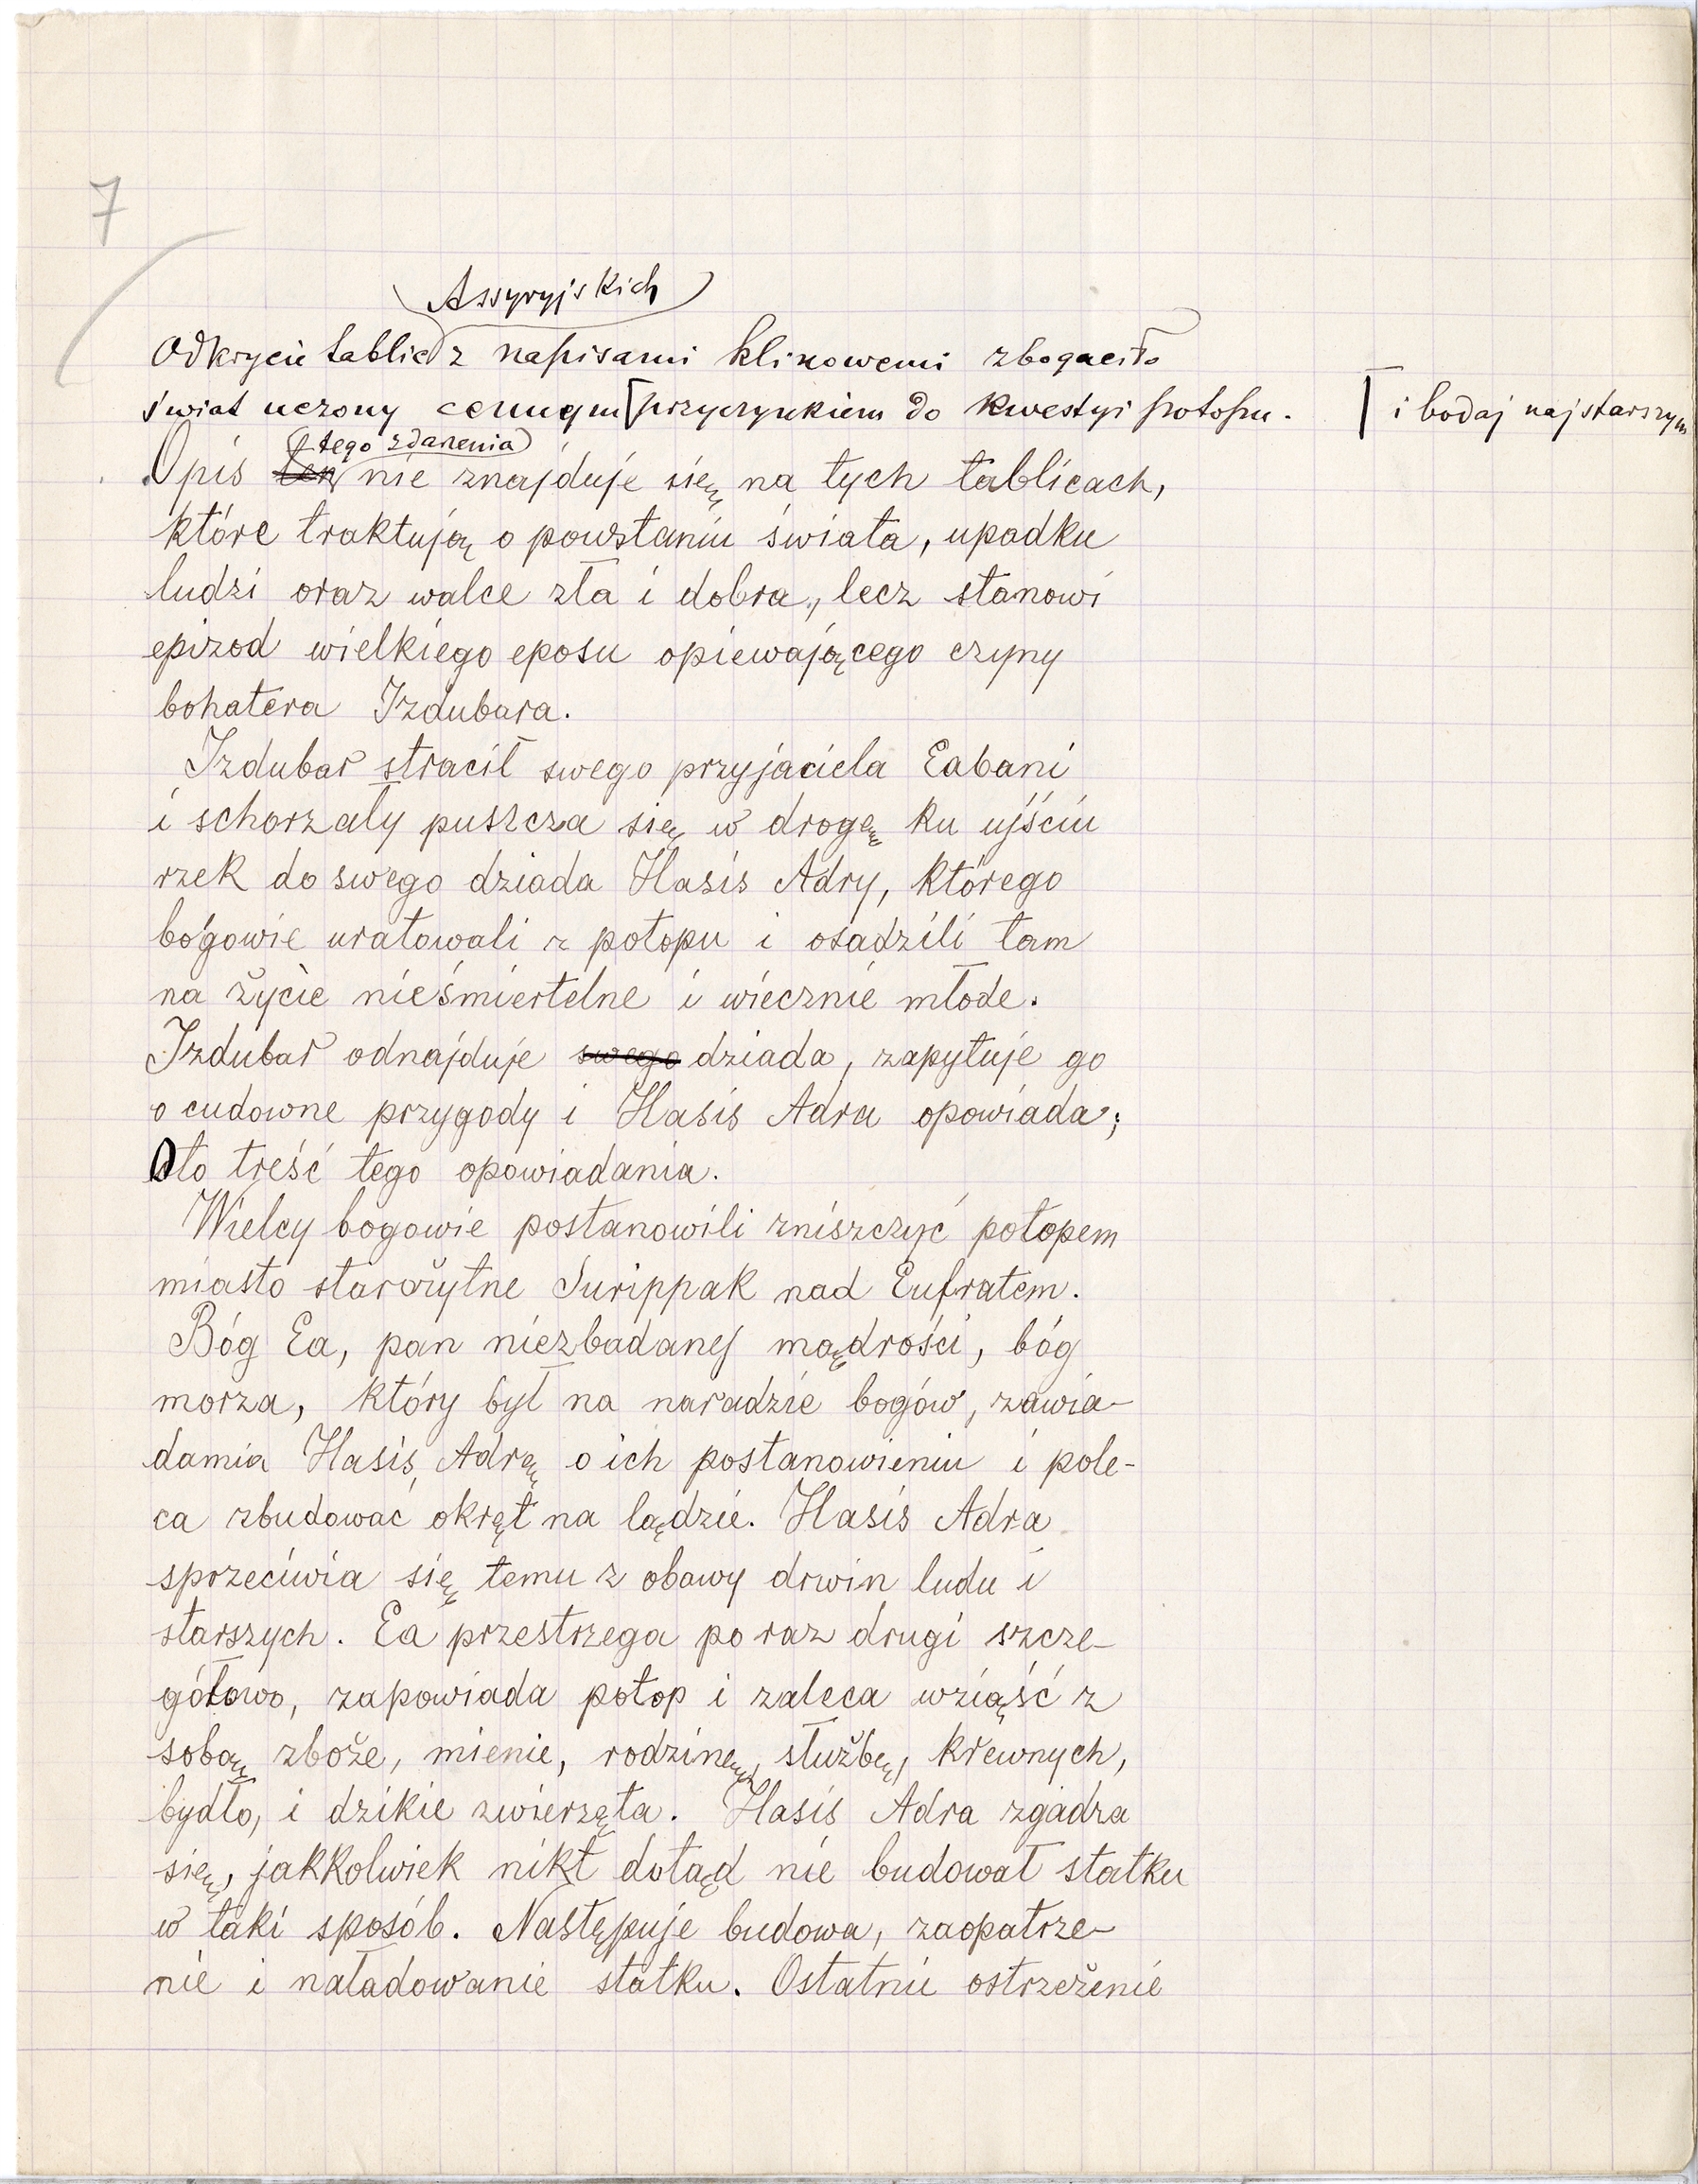 7
Assyryjskich
Odkrycie tablic z napisami klinowemi zbogaciło
świat uczony cennym przyczynkiem do kwestyi potopu.
i bodaj najstarszym
tego zdarzenia
Opis ten nie znajduje się na tych tablicach,
które traktują o powstaniu świata, upadku
ludzi oraz walce zła i dobra, lecz stanowi
epizod wielkiego eposu opiewającego czyny
bohatera Izdubara.
Izdubar stracił swego przyjaciela Eabani
i schorzały puszcza się w drogę ku ujściu
rzek do swego dziada Hasis Adry, którego
bogowie uratowali z potopu i osadzili tam
na życie nieśmiertelne i wiecznie młode.
Izdubar odnajduje swego dziada, zapytuje go
o cudowne przygody i Hasis Adra opowiada;
Oto treść tego opowiadania.
Wielcy bogowie postanowili zniszczyć potopem
miasto starożytne Surippak nad Eufratem.
Bóg Ea, pan niezbadanej mądrości, bóg
morza, który był na naradzie bogów, zawia-
damia Hasis Adrę o ich postanowieniu i pole-
ca zbudować okręt na lądzie. Hasis Adra
sprzeciwia się temu z obawy drwin ludu i
starszych. Ea przestrzega po raz drugi szcze-
gółowo, zapowiada potop i zaleca wziąść z
sobą zboże, mienie, rodzinę, służbę, krewnych,
bydło, i dzikie zwierzęta. Hasis Adra zgadza
się, jakkolwiek nikt dotąd nie budował statku
w taki sposób. Następuje budowa, zaopatrze-
nie i naładowanie statku. Ostatnie ostrzeżenie